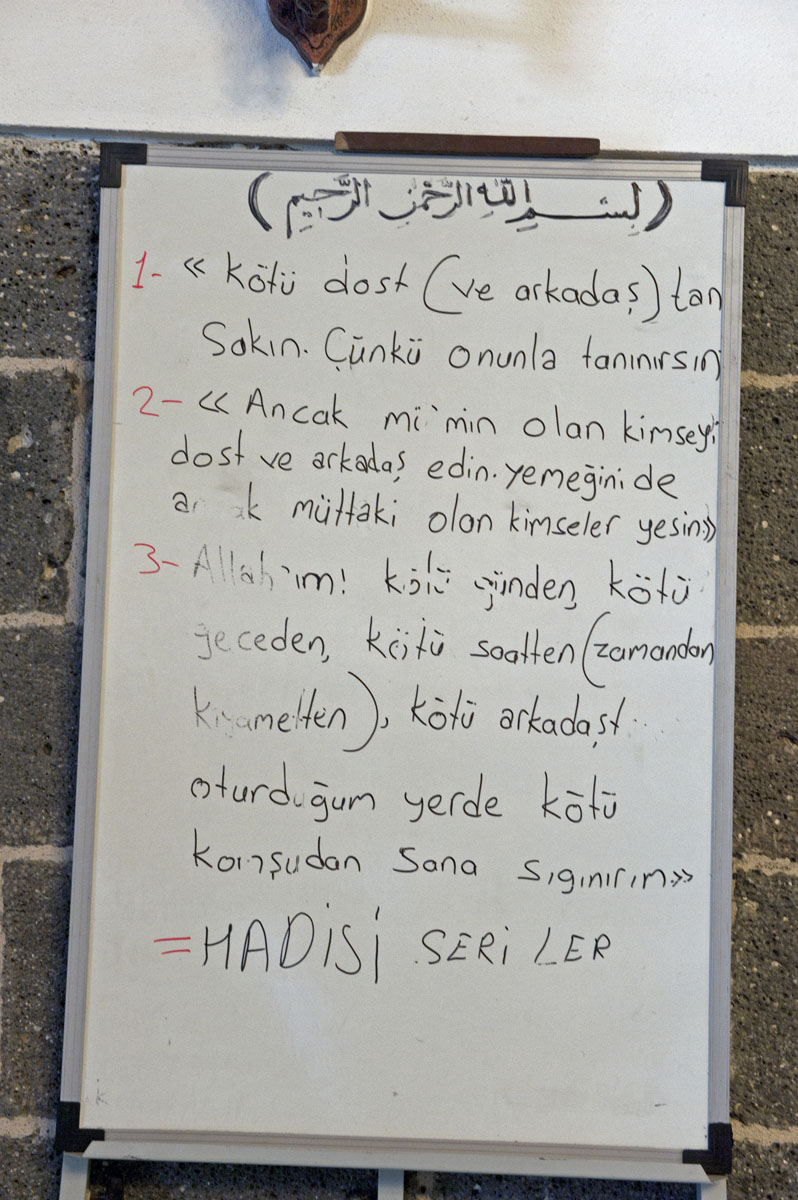 (بِسْمِ اللّٰهِ الرَّحْمٰنِ الرَّحِيمِ)
1- « Kötü dost (ve arkadaş)tan
Sakın. Çünkü onunla tanınırsın
2- « Ancak mi'min olan kimseyi
dost ve arkadaş edin. yemeğini de
müttaki olan kimseler yesin»
3- Allah'ım! kötü günden, kötü
geceden, kötü saatten (zamandan
kıyametten), kötü
oturduğum yerde kötü
komşudan Sana sıgınırım»
= HADİSİ